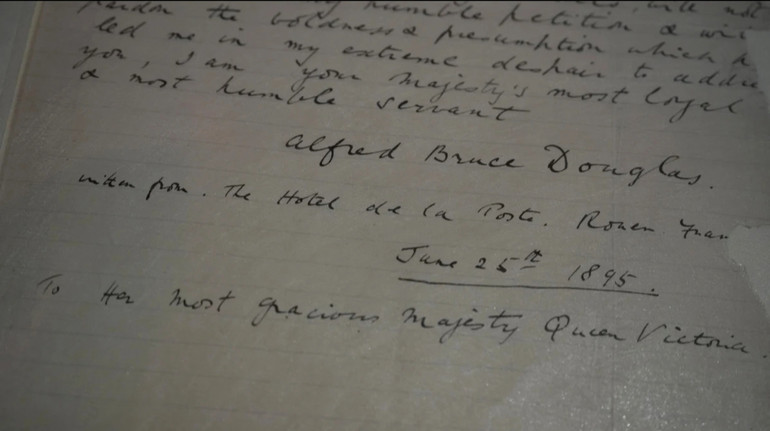 humble petition & will not
pardon the boldness & presumption which h
led me in my extreme despair to addre
you, I am your majesty's most loyal
& most humble servant
Alfred Bruce Douglas.
written from. The Hotel de la Poste. Rouen Fran
June 25th 1895.
To Her most gracious majesty Queen Victoria.